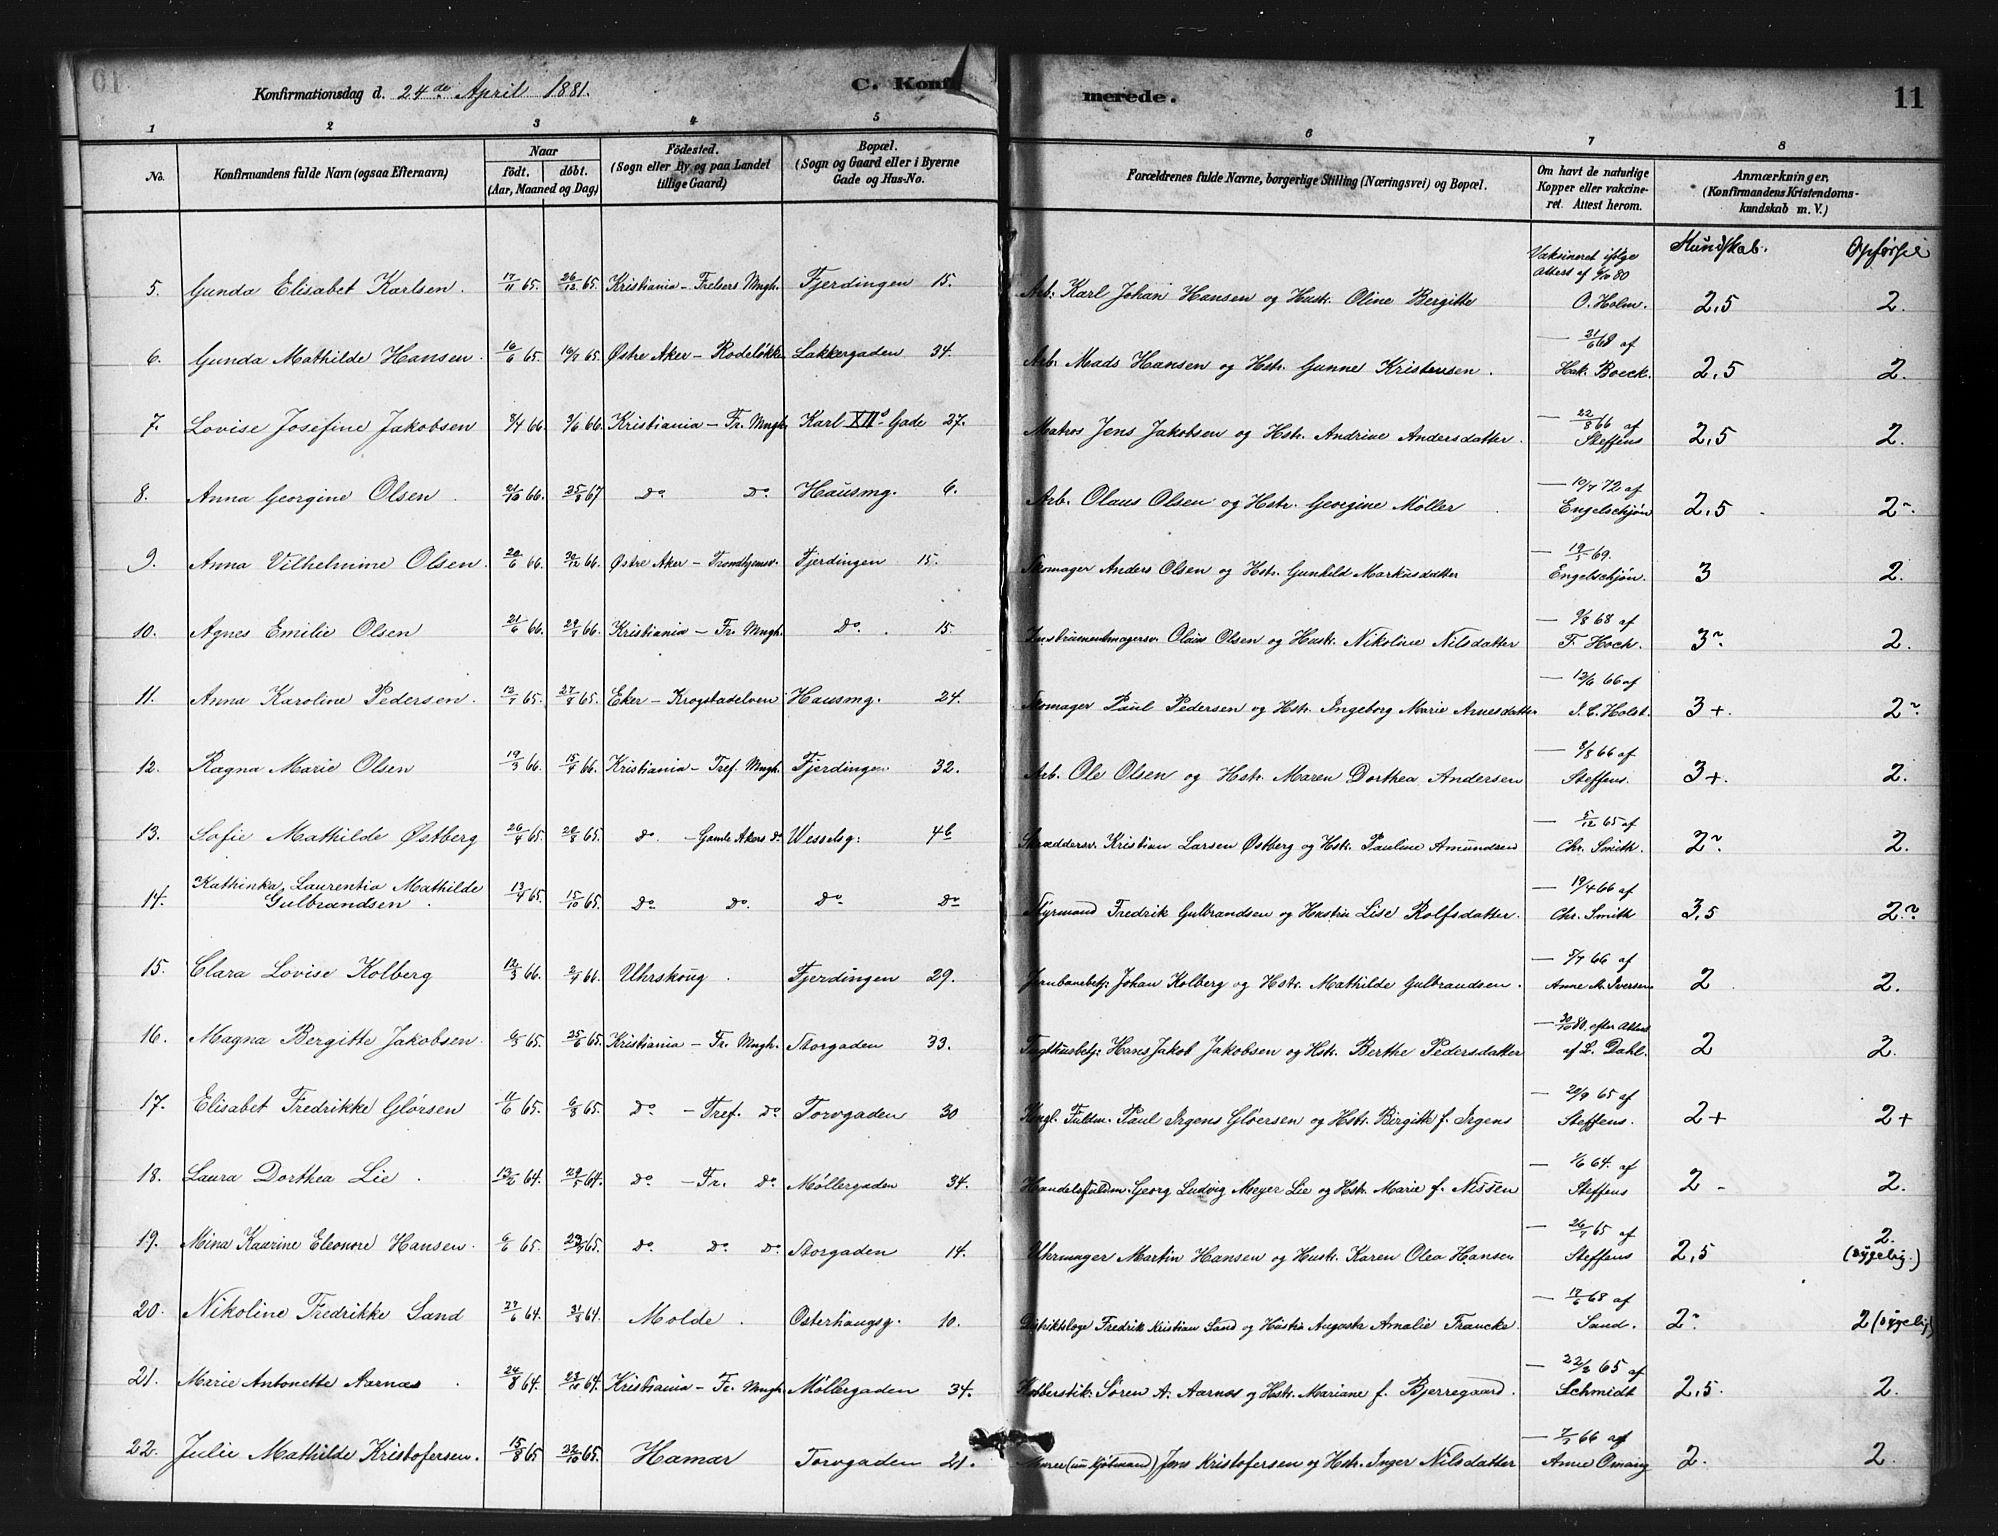 10
Konfirmationsdag d. 24de April 1881. C. Konfi merede. 11
1 2 3 4 5 6 7 8
No. Konfirmandens fulde Navn (ogsaa Efternavn) Naar födt. döbt. (Aar, Maaned og Dag) Födested. (Sogn eller By og paa Landet tillige Gaard) Bopæl. (Sogn og Gaard eller i Byerne Gade og Hus-No. Forældrenes fulde Navne, borgerlige Stilling (Næringsvei) og Bopæl. Om havt de naturlige Kopper eller vakcineret. Attest herom. Anmærkninger, (Konfirmandens Kristendomskundskab m. V.)
Kundskab. Opførsel
5. Gunda Elisabet Karlsen. 17/11 65. 26/12 65. Kristiania - Trelsers Mngh. Fjerdingen 15. Arb. Karl Johan Hansen og Hustr. Oline Bergitte Vaksineret ifølge Attest af 80 O. Holm. 2,5 2.
6. Gunda Mathilde Hansen. 16/6 65. 16/7 65. Østre Aker - Rodeløkke Lakkergaden 34. Arb. Mads Hansen og Hstr. Gunne Kristensen. — 21/6 68 af Hak. Boeck. 2,5 2.
7. Lovise Josefine Jakobsen 8/4 66. 3/6 66. Kristiania - Fr. Mngh. Karl XIIs Gade 27. Matros Jens Jakobsen og Hstr. Andrine Andersdatter. — 22/8 66 af Steffens 2,5 2.
8. Anna Georgine Olsen 21/10 66. 25/3 67 do do Hausmg. 6. Arb. Olaus Olsen og Hstr. Georgine Möller — 10/7 72 af Engelschjøn 2,5 2~
9. Anna Vilhelmine Olsen. 20/6 66. 30/12 66. Østre Aker - Trondhjemsv. Fjerdingen 15. Skomager Anders Olsen og Hstr. Gunhild Markusdatter — 19/5 69. Engelschjøn. 3 2.
10. Agnes Emilie Olsen 21/6 66. 29/7 66. Kristiania - Fr. Mngh. do. 15. Instrumentmagersv. Olaus Olsen og Hustr. Nikoline Nilsdatter — 9/8 68 af F. Hoch. 3~ 2.
11. Anna Karoline Pedersen. 12/7 65. 27/8 65. Eker - Krogstadelven Hausmg. 24. Skomager Paul Pedersen og Hstr. Ingeborg Marie Arnesdatter — 12/6 66 af J. C. Holst. 3+. 2~
12. Ragna Marie Olsen 19/3 66. 15/4 66. Kristiania - Tref. Mngh. Fjerdingen 32. Arb. Ole Olsen og Hstr. Maren Dorthea Andersen — 8/8 66 af Steffens. 3+. 2.
13. Sofie Mathilde Østberg 26/4 65. 20/8 65. do - Gamle Akers do Wesselsg: 4b Skræddersv. Kristian Larsen Østberg og Hstr. Pauline Amundsen — 5/12 65 af Chr. Smith. 2~. 2.
14. Kathinka Laurentia Mathilde Gulbrandsen. 13/4 65. 15/10 65. do do. do do Styrmand Fredrik Gulbrandsen og Hustru Lise Rolfsdatter. — 19/4 66 af Chr. Smith 3,5 2.~
15. Clara Lovise Kolberg 12/3 66. 2/4 66. Uhrskoug. Fjerdingen 29. Jernbanebetj. Johan Kolberg og Hstr. Mathilde Gulbrandsen. — 5/7 66 af Anne A. Iversen 2 2.
16. Magna Bergitte Jakobsen. 6/5 65. 25/6 65. Kristiania - Fr. Mngh. Storgaden 33. Tugthusbetj: Hans Jakob Jakobsen og Hstr. Berthe Pedersdatter — 30/10 80, efter Attest af L. Dahl. 2 2.
17. Elisabet Fredrikke Glörsen 11/6 65. 6/8 65. do - Tref. do Torvgaden 30 Kngl. Fuldm. Paul Irgens Glöersen og Hstr. Birgitte f. Irgens — 20/9 65 af Steffens. 2+ 2+
18. Laura Dorthea Lie. 13/2 64. 29/5 64. do - Fr. do Møllergaden 34. Handelsfuldm. Georg Ludvig Meyer Lie og Hstr. Marie f. Nissen — 1/6 64. af Steffens 2 - 2.
19. Mina Kaarine Eleonore Hansen. 6/6 65. 23/7 65. do do do Storgaden 14. Uhrmager Martin Hansen og Hustr. Karen Olea Hansen — 26/7 65 af Steffens 2,5 2. (sygelig.)
20. Nikoline Fredrikke Sand 27/6 64. 31/8 64. Molde. Osterhaugsg. 10. Distriktslæge Fredrik Kristian Sand og Hustru Augusta Amalie Francke. — 17/6 68 af Sand. 2~ 2 (sygelig)
21. Marie Antonette Aarnæs. 24/8 64. 23/10 64. Kristiania - Fr. Mngh. Møllergaden 34. Kobberstik: Sören A. Aarnæs og Hstr. Mariane f. Bjerregaard. — 22/2 65 af Schmidt 2,5. 2.
22. Julie Mathilde Kristofersen. 15/8 65 22/10 65. Hamar Torvgaden 21. Murer (nu Kjøbmand) Jens Kristofersen og Hstr. Inger Nilsdatter — 7/7 66 af Anne Omang 2. 2.